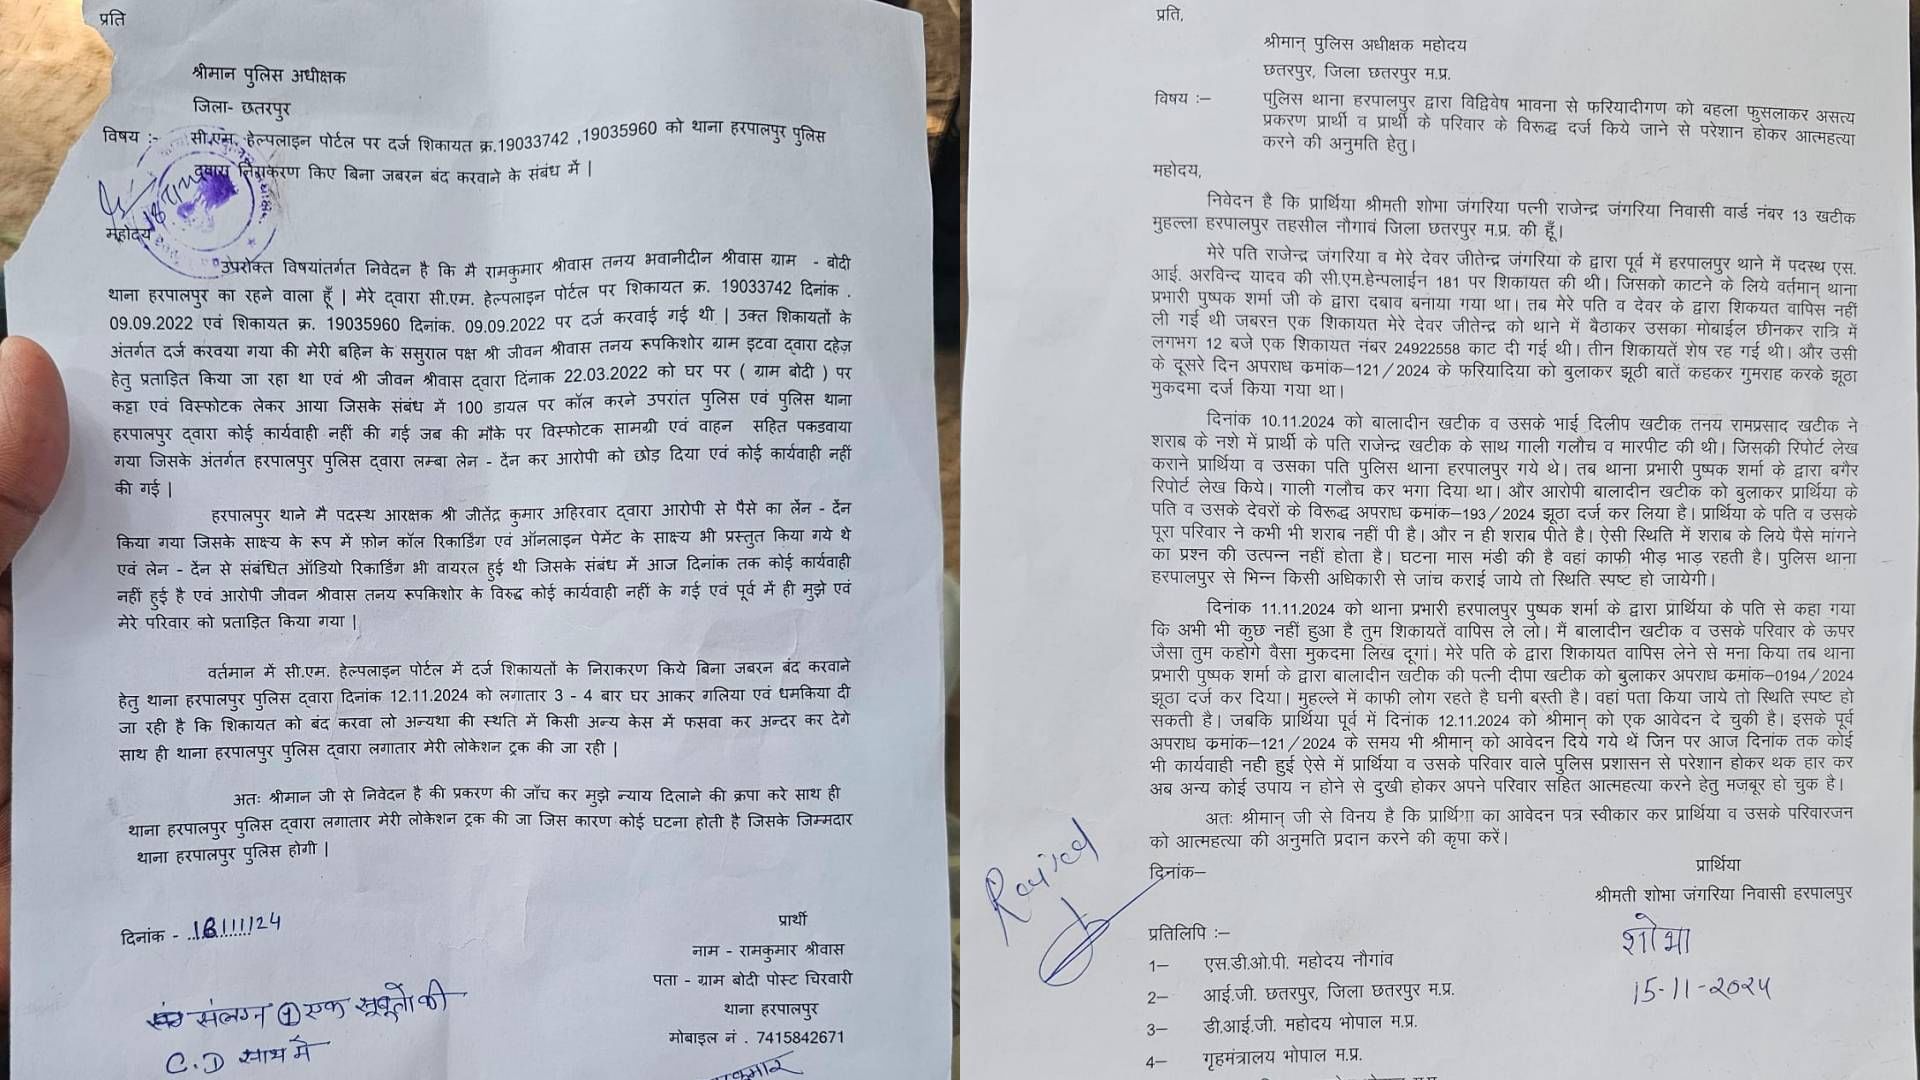 प्रति
श्रीमान पुलिस अधीक्षक
जिला- छतरपुर
विषय :- सी.एम. हेल्पलाइन पोर्टल पर दर्ज शिकायत क्र.19033742 ,19035960 को थाना हरपालपुर पुलिस
द्वारा निराकरण किए बिना जबरन बंद करवाने के संबंध में |
महोदय
उपरोक्त विषयांतर्गत निवेदन है कि मै रामकुमार श्रीवास तनय भवानीदीन श्रीवास ग्राम - बोदी
थाना हरपालपुर का रहने वाला हूँ | मेरे द्वारा सी.एम. हेल्पलाइन पोर्टल पर शिकायत क्र. 19033742 दिनांक .
09.09.2022 एवं शिकायत क्र. 19035960 दिनांक. 09.09.2022 पर दर्ज करवाई गई थी | उक्त शिकायतों के
अंतर्गत दर्ज करवया गया की मेरी बहिन के ससुराल पक्ष श्री जीवन श्रीवास तनय रूपकिशोर ग्राम इटवा द्वारा दहेज़
हेतु प्रताड़ित किया जा रहा था एवं श्री जीवन श्रीवास द्वारा दिंनाक 22.03.2022 को घर पर ( ग्राम बोदी ) पर
कट्टा एवं विस्फोटक लेकर आया जिसके संबंध में 100 डायल पर कॉल करने उपरांत पुलिस एवं पुलिस थाना
हरपालपुर द्वारा कोई कार्यवाही नहीं की गई जब की मौके पर विस्फोटक सामग्री एवं वाहन सहित पकडवाया
गया जिसके अंतर्गत हरपालपुर पुलिस द्वारा लम्बा लेन - देंन कर आरोपी को छोड़ दिया एवं कोई कार्यवाही नहीं
की गई |
हरपालपुर थाने मै पदस्थ आरक्षक श्री जीतेंद्र कुमार अहिरवार द्वारा आरोपी से पैसे का लेंन - देंन
किया गया जिसके साक्ष्य के रूप में फ़ोन कॉल रिकार्डिंग एवं ऑनलाइन पेमेंट के साक्ष्य भी प्रस्तुत किया गये थे
एवं लेन - देंन से संबंधित ऑडियो रिकार्डिंग भी वायरल हुई थी जिसके संबंध में आज दिनांक तक कोई कार्यवाही
नहीं हुई है एवं आरोपी जीवन श्रीवास तनय रूपकिशोर के विरुद्ध कोई कार्यवाही नहीं के गई एवं पूर्व में ही मुझे एवं
मेरे परिवार को प्रताड़ित किया गया |
वर्तमान में सी.एम. हेल्पलाइन पोर्टल में दर्ज शिकायतों के निराकरण किये बिना जबरन बंद करवाने
हेतु थाना हरपालपुर पुलिस द्वारा दिनांक 12.11.2024 को लगातार 3 - 4 बार घर आकर गलिया एवं धमकिया दी
जा रही है कि शिकायत को बंद करवा लो अन्यथा की स्थति में किसी अन्य केस में फसवा कर अन्दर कर देगे
साथ ही थाना हरपालपुर पुलिस द्वारा लगातार मेरी लोकेशन ट्रक की जा रही |
अतः श्रीमान जी से निवेदन है की प्रकरण की जाँच कर मुझे न्याय दिलाने की क्रपा करे साथ ही
थाना हरपालपुर पुलिस द्वारा लगातार मेरी लोकेशन ट्रक की जा जिस कारण कोई घटना होती है जिसके जिम्मदार
थाना हरपालपुर पुलिस होगी |
दिनांक -
प्रार्थी
नाम - रामकुमार श्रीवास
पता - ग्राम बोदी पोस्ट चिरवारी
थाना हरपालपुर
मोबाइल नं . 7415842671
संलग्न ① एक सूबूतों की
C.D साथ में
प्रति,
श्रीमान् पुलिस अधीक्षक महोदय
छतरपुर, जिला छतरपुर म.प्र.
विषय :– पुलिस थाना हरपालपुर द्वारा विद्विवेष भावना से फरियादीगण को बहला फुसलाकर असत्य
प्रकरण प्रार्थी व प्रार्थी के परिवार के विरूद्ध दर्ज किये जाने से परेशान होकर आत्महत्या
करने की अनुमति हेतु।
महोदय,
निवेदन है कि प्रार्थिया श्रीमती शोभा जंगरिया पत्नी राजेन्द्र जंगरिया निवासी वार्ड नंबर 13 खटीक
मुहल्ला हरपालपुर तहसील नौगावं जिला छतरपुर म.प्र. की हूँ।
मेरे पति राजेन्द्र जंगरिया व मेरे देवर जीतेन्द्र जंगरिया के द्वारा पूर्व में हरपालपुर थाने में पदस्थ एस.
आई. अरविन्द यादव की सी.एम.हेन्पलाईन 181 पर शिकायत की थी। जिसको काटने के लिये वर्तमान् थाना
प्रभारी पुष्पक शर्मा जी के द्वारा दबाव बनाया गया था। तब मेरे पति व देवर के द्वारा शिकयत वापिस नहीं
ली गई थी जबरन एक शिकायत मेरे देवर जीतेन्द्र को थाने में बैठाकर उसका मोबाईल छीनकर रात्रि में
लगभग 12 बजे एक शिकायत नंबर 24922558 काट दी गई थी। तीन शिकायतें शेष रह गई थी। और उसी
के दूसरे दिन अपराध क्रमांक–121/2024 के फरियादिया को बुलाकर झूठी बातें कहकर गुमराह करके झूठा
मुकदमा दर्ज किया गया था।
दिनांक 10.11.2024 को बालादीन खटीक व उसके भाई दिलीप खटीक तनय रामप्रसाद खटीक ने
शराब के नशे में प्रार्थी के पति राजेन्द्र खटीक के साथ गाली गलौच व मारपीट की थी। जिसकी रिपोर्ट लेख
कराने प्रार्थिया व उसका पति पुलिस थाना हरपालपुर गये थे। तब थाना प्रभारी पुष्पक शर्मा के द्वारा बगैर
रिपोर्ट लेख किये। गाली गलौच कर भगा दिया था। और आरोपी बालादीन खटीक को बुलाकर प्रार्थिया के
पति व उसके देवरों के विरूद्ध अपराध क्रमांक–193/2024 झूठा दर्ज कर लिया है। प्रार्थिया के पति व उसके
पूरा परिवार ने कभी भी शराब नहीं पी है। और न ही शराब पीते है। ऐसी स्थिति में शराब के लिये पैसे मांगने
का प्रश्न की उत्पन्न नहीं होता है। घटना मास मंडी की है वहां काफी भीड़ भाड़ रहती है। पुलिस थाना
हरपालपुर से भिन्न किसी अधिकारी से जांच कराई जाये तो स्थिति स्पष्ट हो जायेगी।
दिनांक 11.11.2024 को थाना प्रभारी हरपालपुर पुष्पक शर्मा के द्वारा प्रार्थिया के पति से कहा गया
कि अभी भी कुछ नहीं हुआ है तुम शिकायतें वापिस ले लो। मैं बालादीन खटीक व उसके परिवार के ऊपर
जैसा तुम कहोगे वैसा मुकदमा लिख दूगां। मेरे पति के द्वारा शिकायत वापिस लेने से मना किया तब थाना
प्रभारी पुष्पक शर्मा के द्वारा बालादीन खटीक की पत्नी दीपा खटीक को बुलाकर अपराध क्रमांक–0194/2024
झूठा दर्ज कर दिया। मुहल्ले में काफी लोग रहते है घनी बस्ती है। वहां पता किया जाये तो स्थिति स्पष्ट हो
सकती है। जबकि प्रार्थिया पूर्व में दिनांक 12.11.2024 को श्रीमान् को एक आवेदन दे चुकी है। इसके पूर्व
अपराध क्रमांक–121/2024 के समय भी श्रीमान् को आवेदन दिये गये थें जिन पर आज दिनांक तक कोई
भी कार्यवाही नही हुई ऐसे में प्रार्थिया व उसके परिवार वाले पुलिस प्रशासन से परेशान होकर थक हार कर
अब अन्य कोई उपाय न होने से दुखी होकर अपने परिवार सहित आत्महत्या करने हेतु मजबूर हो चुक है।
अतः श्रीमान् जी से विनय है कि प्रार्थिया का आवेदन पत्र स्वीकार कर प्रार्थिया व उसके परिवारजन
को आत्महत्या की अनुमति प्रदान करने की कृपा करें।
दिनांक–
प्रार्थिया
श्रीमती शोभा जंगरिया निवासी हरपालपुर
शोभा
15-11-२०२५
प्रतिलिपि :–
1– एस.डी.ओ.पी. महोदय नौगांव
2– आई.जी. छतरपुर, जिला छतरपुर म.प्र.
3– डी.आई.जी. महोदय भोपाल म.प्र.
4– गृहमंत्रालय भोपाल म.प्र.